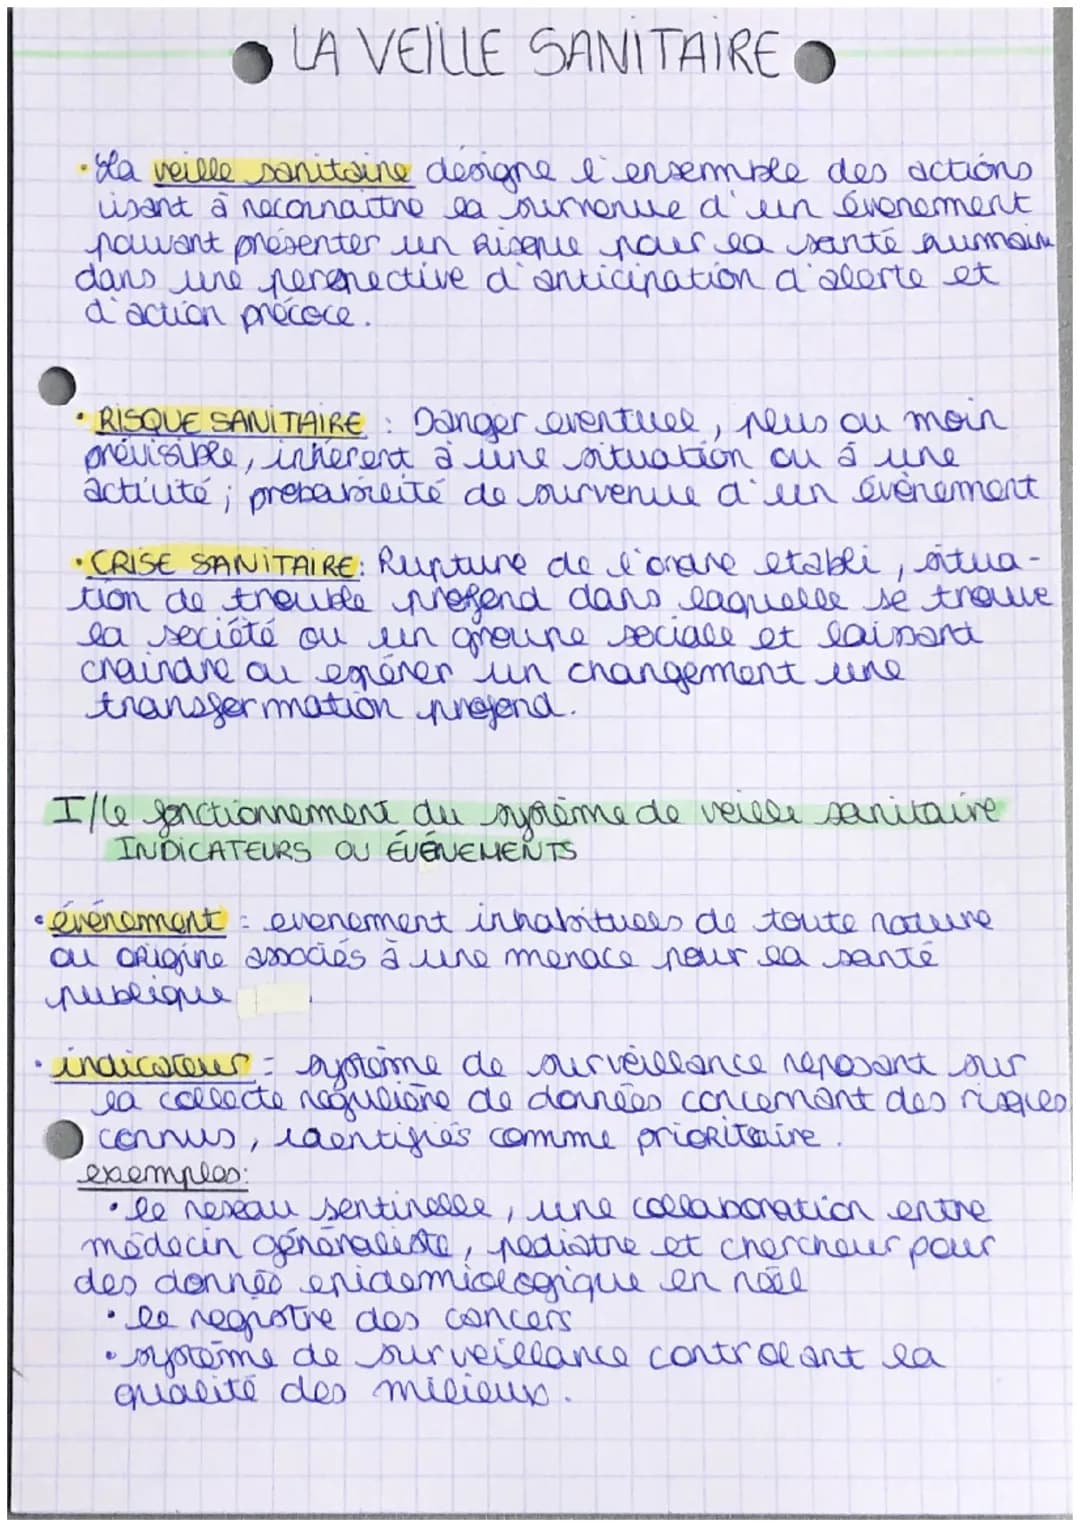 LA VEILLE SANITAIRE
• La veille sanitaire désigne l'ensemble des actions
visant à reconnaître la survenue d'un évenement
pouvant présenter un risque pour la santé humaine
dans une perspective d'anticipation d'alerte et
d'action précoce.
• RISQUE SANITIAIRE : Danger eventuel, plus ou moin
prévisible, inhérent à une situation ou à une
activité ; probabilité de survenue d'un évènement
• CRISE SANITAIRE: Rupture de l'ordre etabli, situa-
tion de trouble profond dans laquelle se trouve
la société ou un groupe sociale et laissant
craindre ou espérer un changement une
transformation profond.
I/le fonctionnement du système de veille sanitaire
INDICATEURS OU ÉVÉNEMENTS
• événement : evenement inhabituels de toute nature
ou origine associés à une menace pour la santé
publique
• indicateur = système de surveillance reposant sur
la collecte régulière de données concernant des risques
connus, identifiés comme prioritaire.
exemples:
• le reseau sentinelle, une collaboration entre
médecin généraliste, pediatre et chercheur pour
des donnée epidemiologique en réel
• le registre des cancers
• système de surveillance controlant la
qualité des milieux.